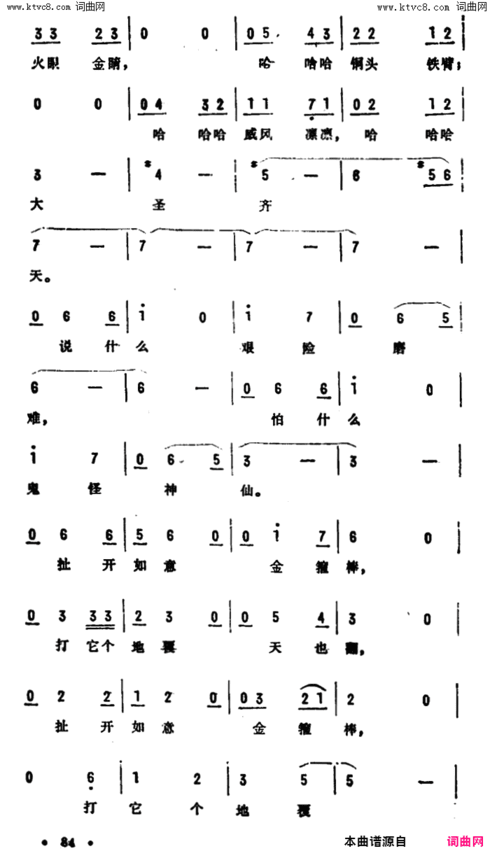 www.ktvc8.com 词曲网
www.ktvc8.com 词曲网
3 3 2 3 | 0 0 | 0 5 4 3 | 2 2 1 2 |
火眼 金睛， 哈 哈哈 铜头 铁臂；
0 0 | 0 4 3 2 | 1 1 7 1 | 0 2 1 2 |
哈 哈哈 威风 凛凛， 哈 哈哈
3 — | #4 — | #5 — | 6 #5 6 |
大 圣 齐
7 — | 7 — | 7 — | 7 — |
天。
0 6 6 | i 0 | i 7 | 0 6 5 |
说什么 艰险 磨
6 — | 6 — | 0 6 6 | i 0 |
难， 怕什么
i 7 | 0 6 5 | 3 — | 3 — |
鬼怪 神 仙。
0 6 6 | 5 6 0 | 0 i 7 | 6 0 |
扯开如意 金箍棒，
0 3 3 3 | 2 3 0 | 0 5 4 | 3 0 |
打它个地覆 天也翻，
0 2 2 | 1 2 0 | 0 3 2 1 | 2 0 |
扯开如意 金 箍 棒，
0 6 | 1 2 | 3 5 | 5 — |
打 它 个 地 覆
• 84 •
本曲谱源自 词曲网